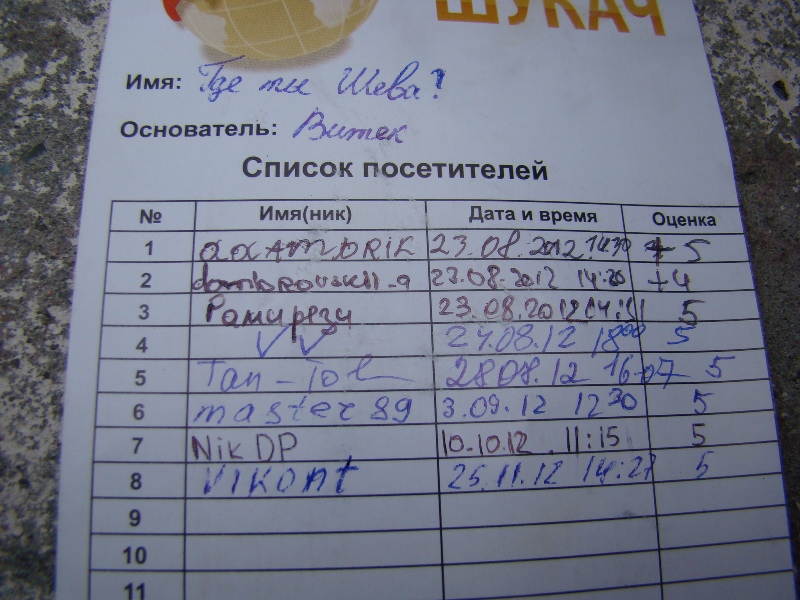 ШУКАЧ
Имя: Где ты Шева?
Основатель: Витек
Список посетителей
№ Имя(ник) Дата и время Оценка
1 23.08.2012 14:30 5
2 dombrovskii-a 23.08.2012 14:20 +4
3 Рамирези 23.08.2012 14:31 5
4 VV 24.08.12 18:00 5
5 Tan-Tol 28.08.12 16-07 5
6 master89 3.09.12 12 30 5
7 NikDP 10.10.12 11:15 5
8 VIKont 25.11.12 14:27 5
9
10
11